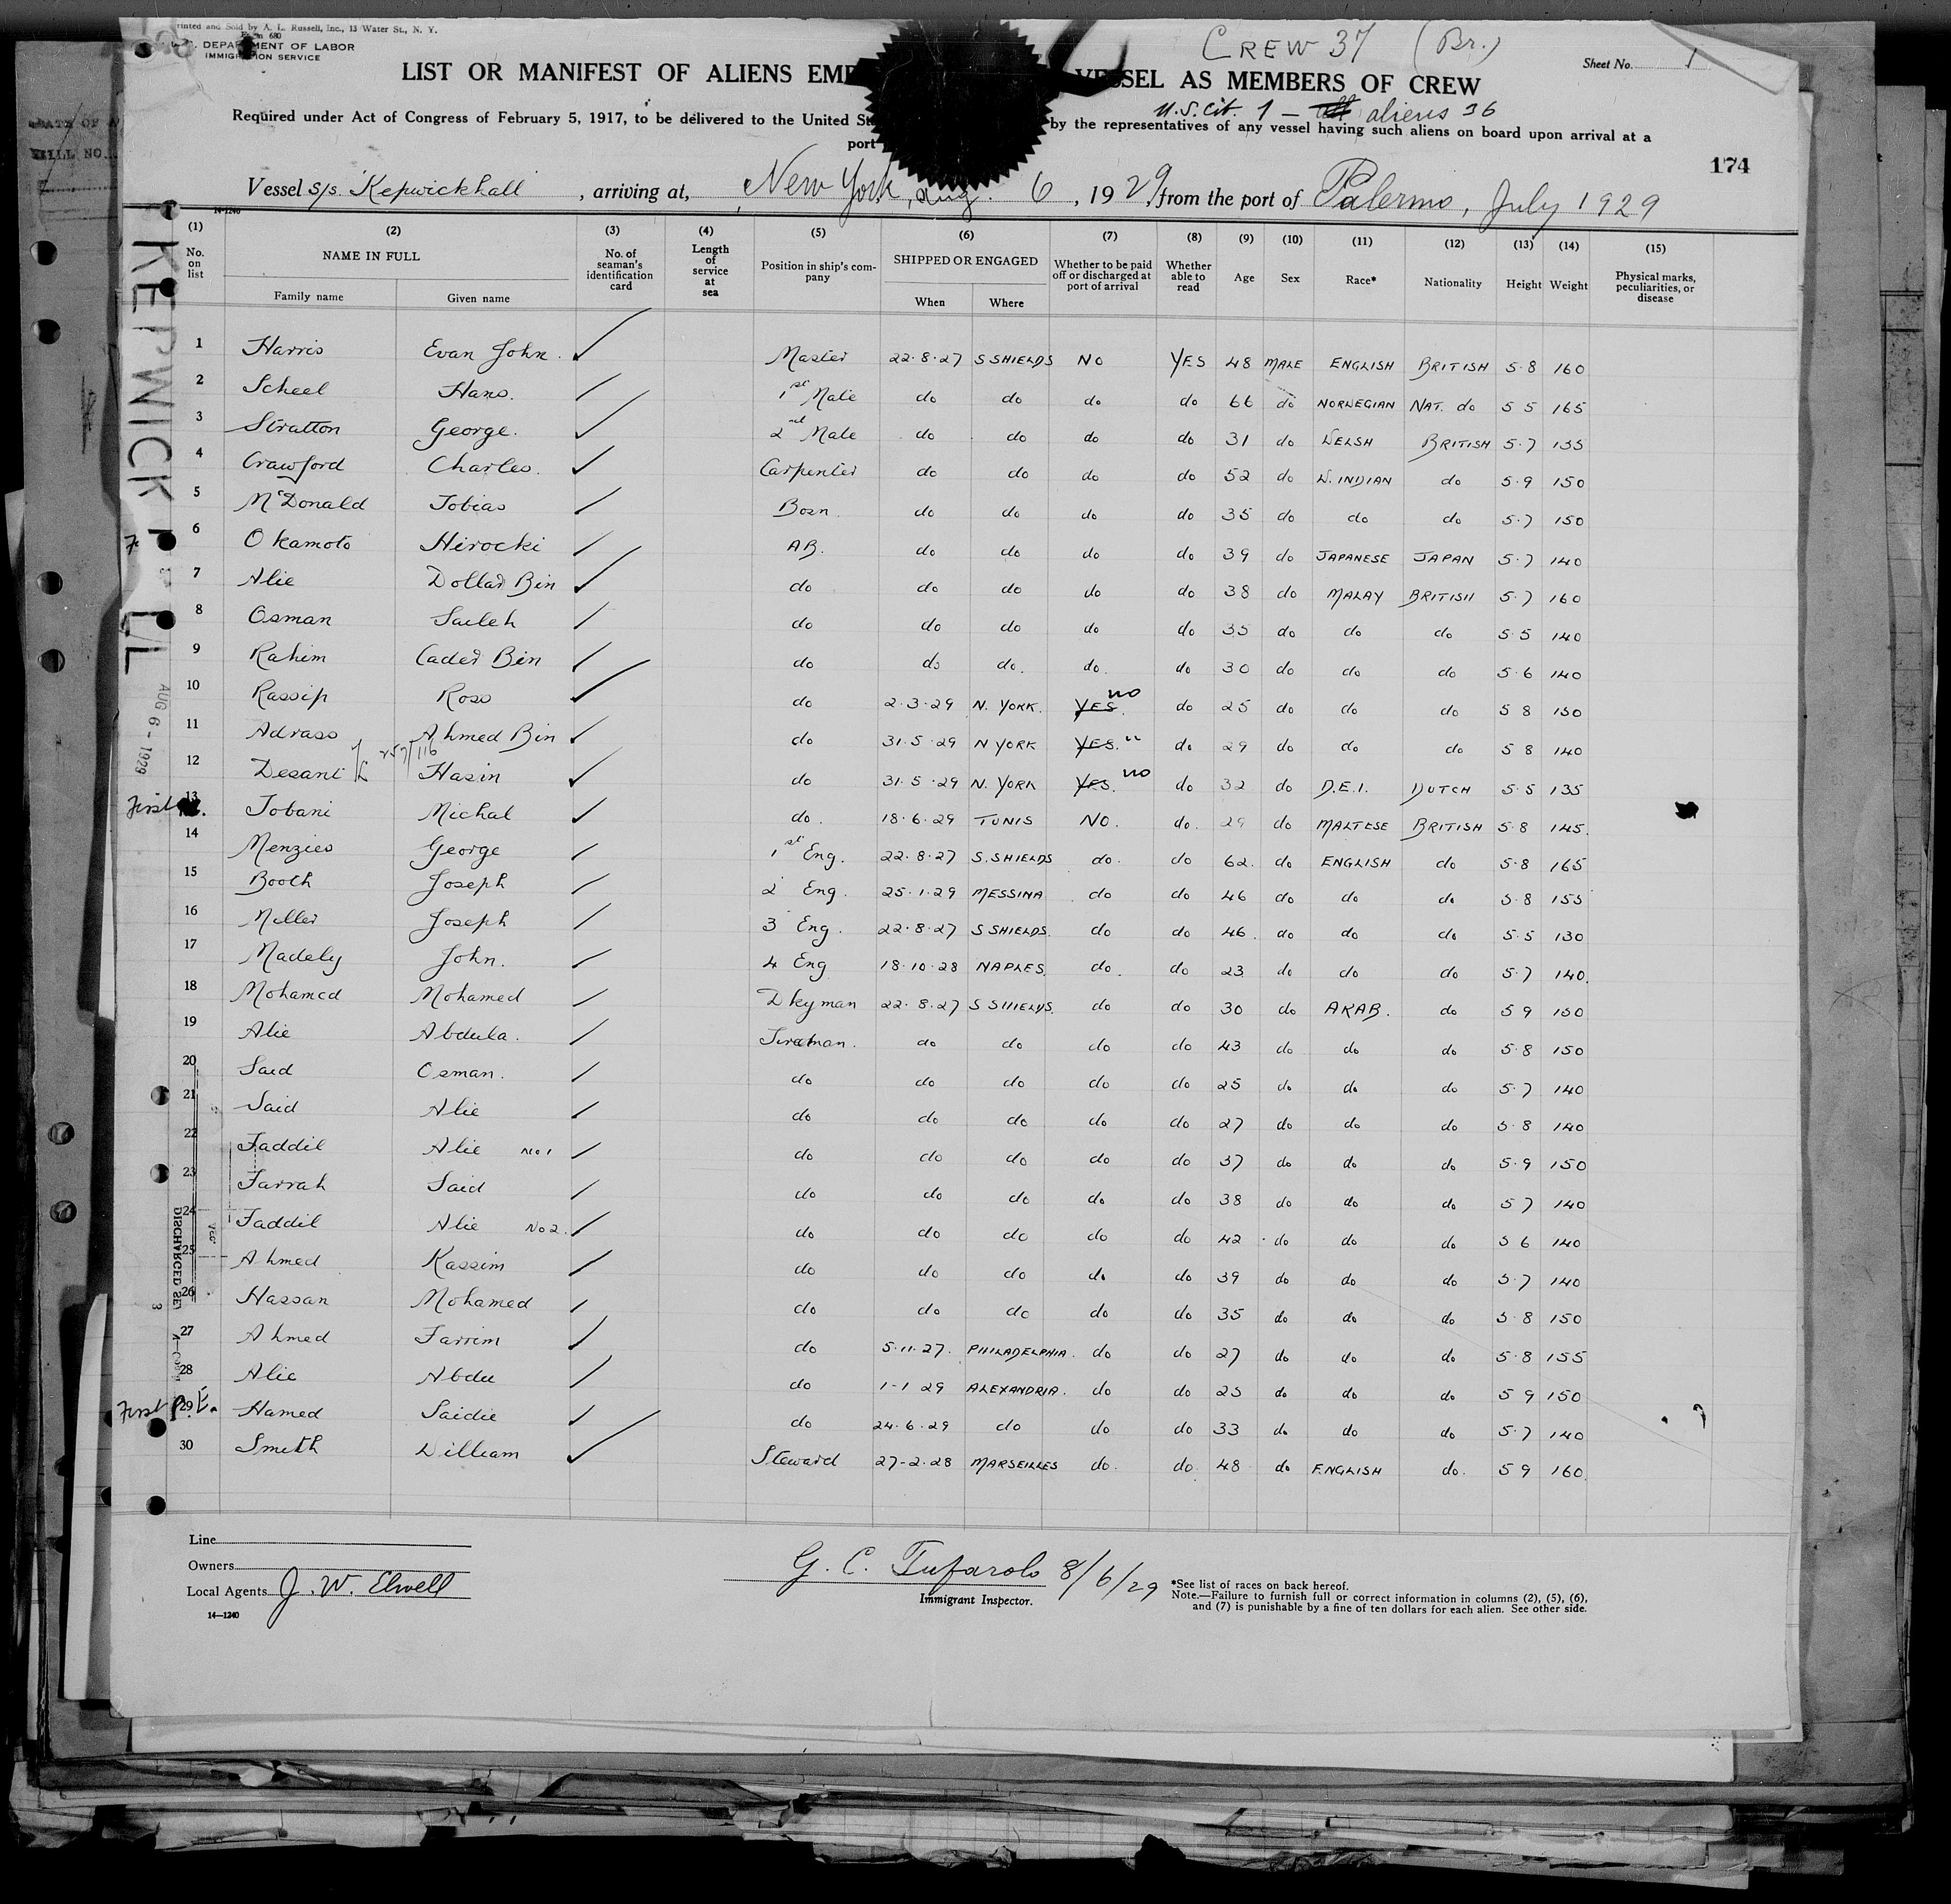 Printed and Sold by A. L. Russell, Inc., 13 Water St., N. Y.
Form 680
DEPARTMENT OF LABOR
IMMIGRATION SERVICE
CREW 37 (Br.)
Sheet No. 1
LIST OR MANIFEST OF ALIENS VESSEL AS MEMBERS OF CREW
U.S. Cit. 1 — aliens 36
Required under Act of Congress of February 5, 1917, to be delivered to the United by the representatives of any vessel having such aliens on board upon arrival at a
port
174
Vessel s/s. Kepwickhall, arriving at, New York, Aug. 6, 1929, from the port of Palermo, July 1929
14-1240
(1) (2) (3) (4) (5) (6) (7) (8) (9) (10) (11) (12) (13) (14) (15)
No. on list NAME IN FULL No. of seaman's identification card Length of service at sea Position in ship's company SHIPPED OR ENGAGED Whether to be paid off or discharged at port of arrival Whether able to read Age Sex Race* Nationality Height Weight Physical marks, peculiarities, or disease
Family name Given name When Where
1 Harris Evan John. Master 22.8.27 S SHIELDS NO YES 48 MALE ENGLISH BRITISH 5.8 160
2 Scheel Hans. 1st Mate do do do do 66 do NORWEGIAN NAT. do 5 5 165
3 Stratton George. 2nd Mate do do do do 31 do WELSH BRITISH 5.7 135
4 Crawford Charles. Carpenter do do do do 52 do W. INDIAN do 5.9 150
5 McDonald Tobias Bosn. do do do do 35 do do do 5.7 150
6 Okamoto Hirocki AB. do do do do 39 do JAPANESE JAPAN 5.7 140
7 Alie Dollad Bin do do do do do 38 do MALAY BRITISH 5.7 160
8 Osman Saileh do do do do do 35 do do do 5.5 140
9 Rahim Cader Bin do do do. do. do 30 do do do 5.6 140
10 Rassip Roso do 2.3.29 N. YORK. YES. no do 25 do do do 5 8 150
11 Adraso Ahmed Bin do 31.5.29 N YORK YES. " do 29 do do do 5 8 140
257/116
12 Desant Hasin do 31.5.29 N. YORK YES. no do 32 do D.E.I. DUTCH 5.5 135
First
13 Tobani Michal do. 18.6.29 TUNIS NO. do. 29 do MALTESE BRITISH 5.8 145.
14 Menzies George 1st Eng. 22.8.27 S.SHIELDS do. do 62. do ENGLISH do 5.8 165
15 Booth Joseph 2 Eng. 25.1.29 MESSINA do do 46 do do do 5.8 155
16 Miller Joseph 3 Eng. 22.8.27 S SHIELDS. do do 46. do do do 5.5 130
17 Madely John. 4 Eng 18.10.28 NAPLES. do. do 23 do do do 5.7 140.
18 Mohamed Mohamed Dkeyman 22.8.27 S SHIELDS. do do 30 do ARAB. do 5 9 150
19 Alie Abdula. Fireman. do do do do 43 do do do 5.8 150
20 Said Osman. do do do do do 25 do do do 5.7 140
21 Said Alie do do do do do 27 do do do 5.8 140
22 Faddil Alie No 1 do do do do do 37 do do do 5.9 150
23 Farrah Said do do do do do 38 do do do 5 7 140
24 Faddil Alie No 2. do do do do do 42 do do do 5 6 140
25 Ahmed Kassim do do do do do 39 do do do 5.7 140
26 Hassan Mohamed do do do do do 35 do do do 5.8 150
27 Ahmed Farrim do 5.11.27. PHILADELPHIA. do do 27 do do do 5.8 155
28 Alie Abdu do 1-1 29 ALEXANDRIA. do do 25 do do do 5 9 150
First P.E.
29 Hamed Saidie do 24.6.29 do do do 33 do do do 5.7 140
30 Smith William Steward 27-2.28 MARSEILLES do. do. 48 do ENGLISH do. 5 9 160.
KEPWICK
AUG 6 - 1929
DISCHARGED
Line
Owners
Local Agents J. W. Elwell
14—1240
G. C. Tufarolo 8/6/29
Immigrant Inspector.
*See list of races on back hereof.
Note.—Failure to furnish full or correct information in columns (2), (5), (6),
and (7) is punishable by a fine of ten dollars for each alien. See other side.